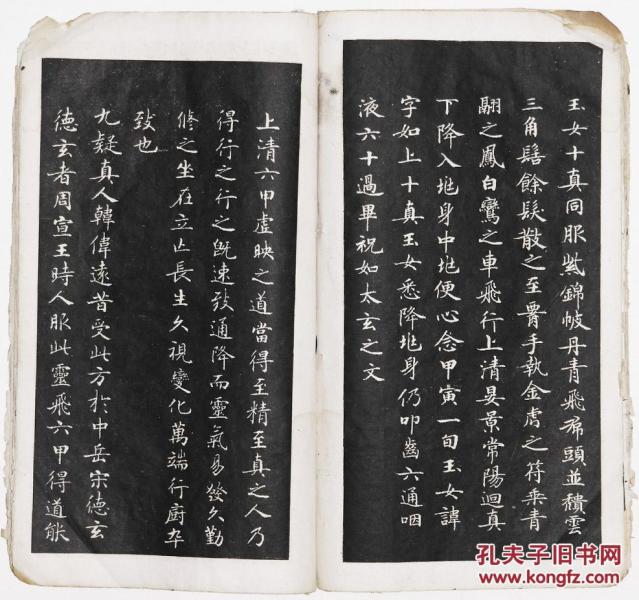 玉女十真同服紫錦帔丹青飛帬頭並穨雲
三角髻餘髮散之至腰手執金虎之符乘青
翮之鳳白鸞之車飛行上清晏景常陽迴真
下降入兆身中兆便心念甲寅一旬玉女諱
字如上十真玉女悉降兆身仍叩齒六通咽
液六十過畢祝如太玄之文
上清六甲虛映之道當得至精至真之人乃
得行之行之既速致通降而靈氣易發久勤
修之坐在立亡長生久視變化萬端行廚卒
致也
九疑真人韓偉遠昔受此方於中岳宋德玄
德玄者周宣王時人服此靈飛六甲得道能
孔夫子旧书网
www.kongfz.com